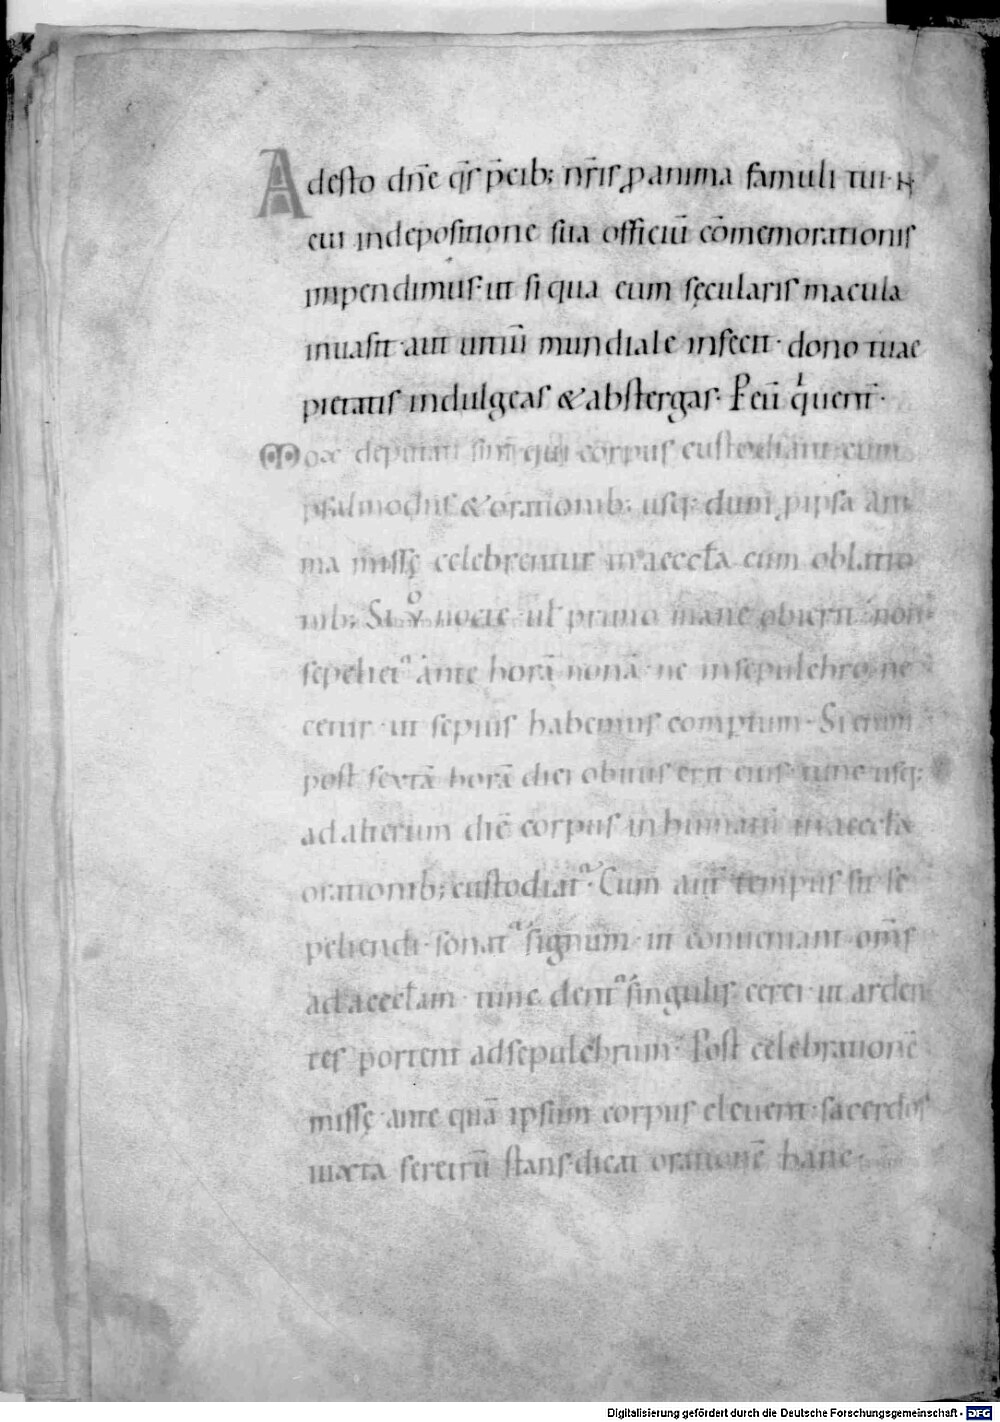 Adesto dn̄e q̄s p̄cib; nr̄is ꝓ anima famuli tui · N̄
cui indepositione sua officiū cōmemorationis
impendimus · ut si qua eum sęcularis macula
inuasit · aut uitiū mundiale infecit · dono tuae
pietatis indulgeas & abstergas · P eū q̍uenit̄ ·
Mox deputati sint qui corpus custodiant · cum
psalmodiis & orationib; usq; dum ꝓ ipsa ani
ma missę celebrentur in aeccła cum oblatio
nib; Si v̊ nocte · ut primo mane obierit · non
sepeliet᷑ ante horā nonā · ne insepulchro ne
cetur · ut sepius habemus comptum · Si enim
post sextā horā diei obitus erit eius · tunc usq;
ad alterum diē corpus inhumatū in aeccła
orationib; custodiat᷑ · Cum aut̄ tempus sit se
peliendi · sonat᷑ signum · ut conueniant om̄s
ad aeccłam · tunc dent᷑ singulis cerei · ut arden
tes portent ad sepulchrum · Post celebrationē
missę ante quā ipsum corpus eleuent · sacerdos
iuxta feretrū stans dicat orationē hanc ·
Digitalisierung gefördert durch die Deutsche Forschungsgemeinschaft - DFG